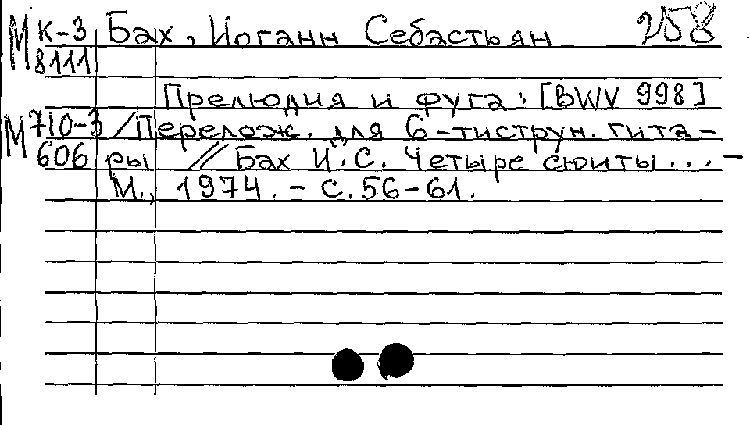 МК-3 Бах, Иоганн Себастьян 258
8111
Прелюдия и фуга: [BWV 998]
М710-3 /Перелож. для 6-тиструн. гита-
606 ры // Бах И.С. Четыре сюиты... -
М., 1974. - С.56-61.